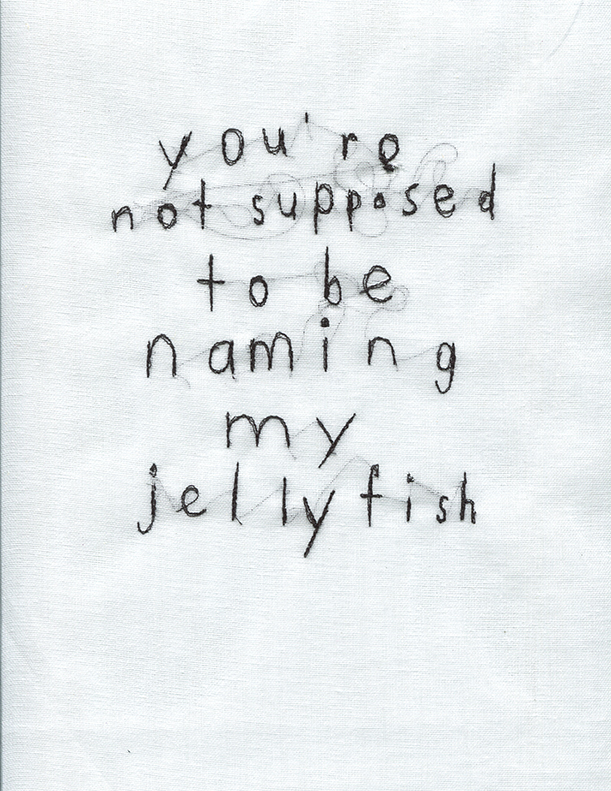 you're
not supposed
to be
naming
my
jellyfish